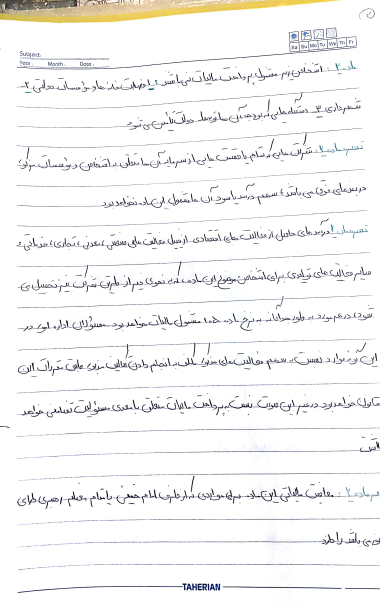 Subject:
Year: Month: Date:
Sa Su Mo Tu We Th Fr
ماده ۲: اشخاص زیر مشمول پرداخت مالیات نمی باشند: ۱. وزارتخانه ها و مؤسسات دولتی ۲-
شهرداری ۳. دستگاه هایی که بودجه آن ها توسط دولت تأمین می شود
تبصره ماده ۲: شرکت هایی که تمام یا قسمتی از سرمایه آن ها متعلق به اشخاص و مؤسسات مذکور
در بندهای فوق می باشد، سهم درآمد یا سود آن ها مشمول این ماده نخواهد بود
درآمدهای حاصل از فعالیت های اقتصادی از قبیل فعالیت های صنعتی، معدنی، تجاری، خدماتی و
سایر فعالیت های تولیدی برای اشخاص موضوع این ماده، که به نحوی غیر از طریق شرکت نیز تحصیل می
شود، در هر مورد به طور جداگانه به نرخ ماده ۱۰۵ مشمول مالیات خواهد بود. مسئولان اداره امور در
این گونه موارد نسبت به سهم فعالیت های مذکور مکلف به انجام دادن تکالیف مؤدی طبق مقررات این
قانون خواهد بود در غیر این صورت نسبت به پرداخت مالیات متعلق با مؤدی مسئولیت تضامنی خواهد
داشت
تبصره ماده ۲: معافیت مالیاتی این ماده برای مواردی که از طرف امام خمینی یا مقام معظم رهبری دارای
می باشد را دارد
TAHERIAN